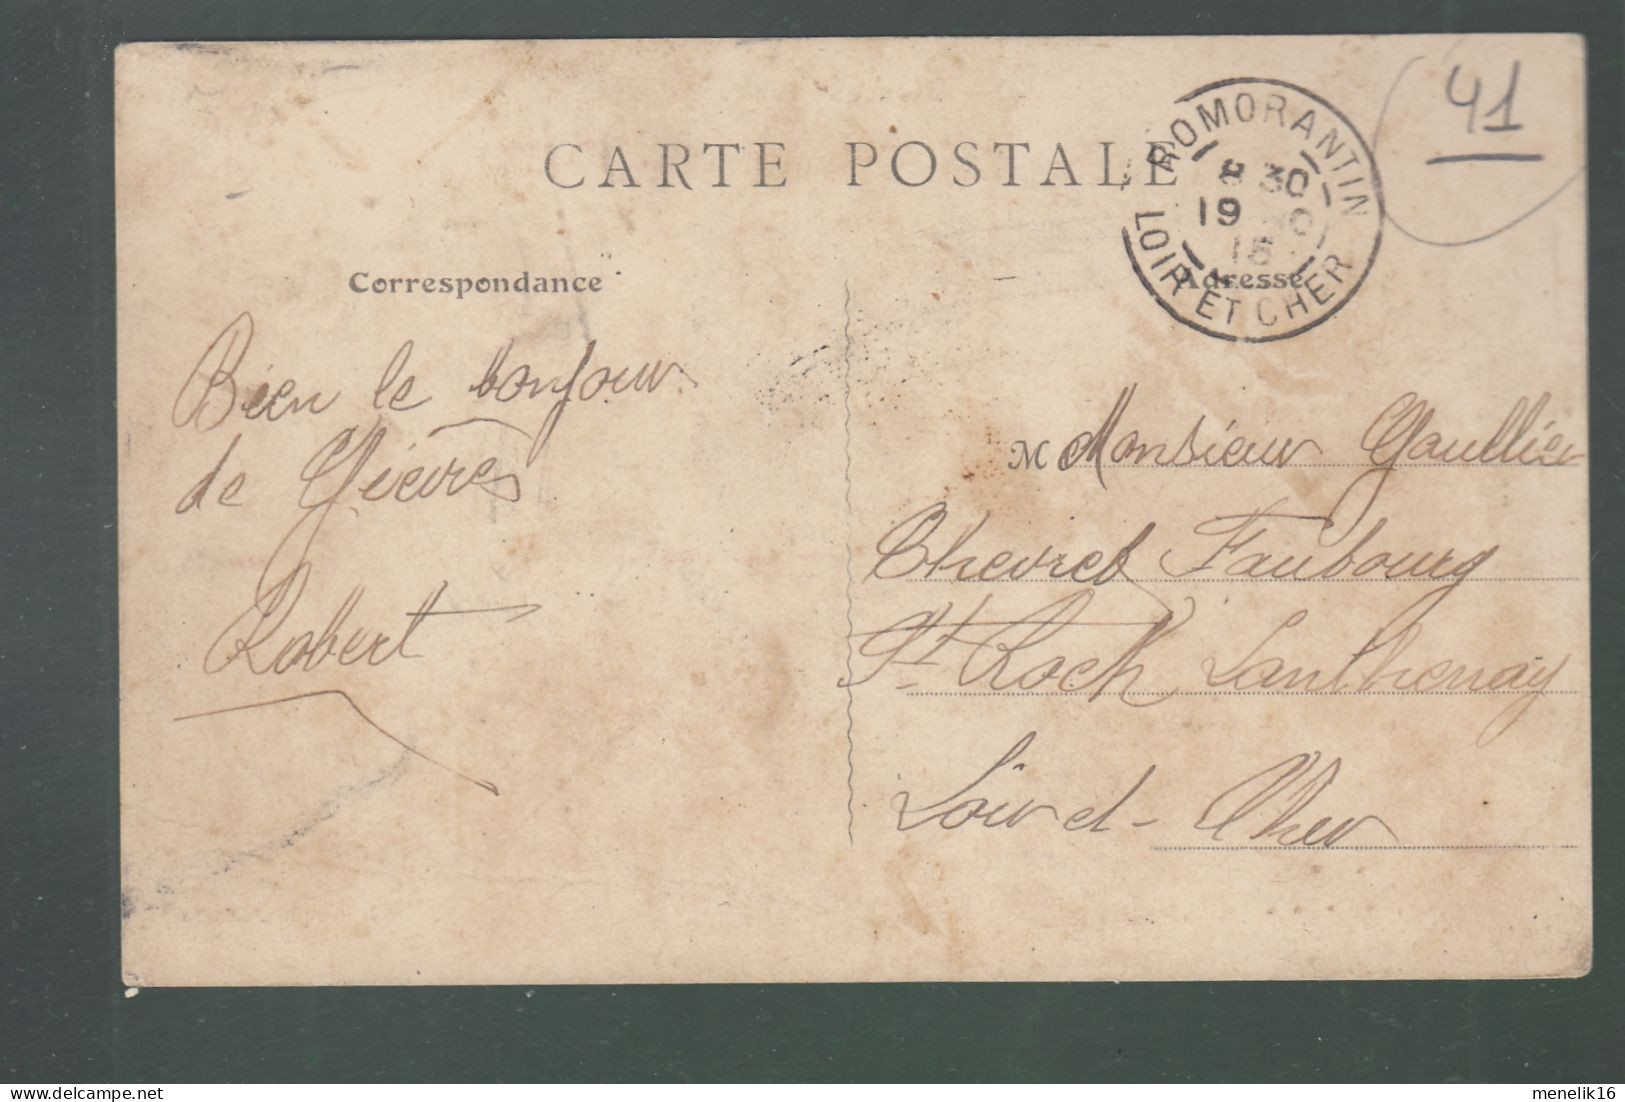 CARTE POSTALE
ROMORANTIN
8 30
19
LOIR ET CHER
41
Correspondance
Adresse
Bien le bonjour
de Gièvres
Robert
M Monsieur Gaullier
Thevret Faubourg
St Roch Lanthenay
Loir et-Cher
delcampe.net
menelik16